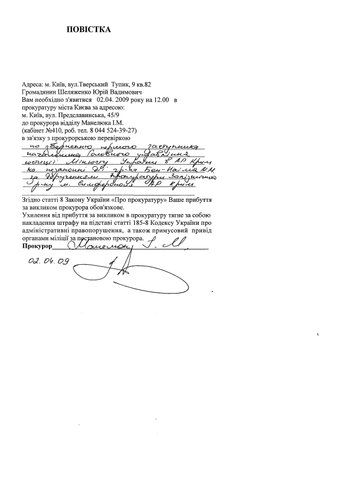 ПОВІСТКА
Адреса: м. Київ, вул.Тверський Тупик, 9 кв.82
Громадянин Шеляженко Юрій Вадимович
Вам необхідно з'явитися 02.04. 2009 року на 12.00 в
прокуратуру міста Києва за адресою:
м. Київ, вул. Предславинська, 45/9
до прокурора відділу Манелюка І.М.
(кабінет №410, роб. тел. 8 044 524-39-27)
в зв'язку з прокурорською перевіркою
по зверненню першого заступника
начальника Головного управління
юстиції Мін'юсту України в АР Крим
на незаконні дії гр-ки
за дорученням прокуратури Залізничного
р-ну м. Сімферополя АР Крим
Згідно статті 8 Закону України «Про прокуратуру» Ваше прибуття
за викликом прокурора обов'язкове.
Ухилення від прибуття за викликом в прокуратуру тягне за собою
накладення штрафу на підставі статті 185-8 Кодексу України про
адміністративні правопорушення, а також примусовий привід
органами міліції за постановою прокурора.
Прокурор І. М.
02.04.09